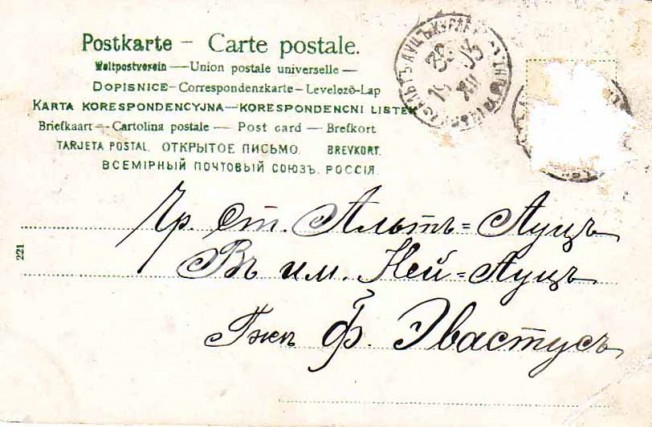 Postkarte – Carte postale.
Weltpostverein — Union postale universelle —
DOPISNICE – Correspondenzkarte – Levelező-Lap
KARTA KORESPONDENCYJNA — KORESPONDENCNI LISTEK
Briefkaart – Cartolina postale — Post card — Brefkort
TARJETA POSTAL. ОТКРЫТОЕ ПИСЬМО. BREVKORT.
ВСЕМІРНЫЙ ПОЧТОВЫЙ СОЮЗЪ. РОССІЯ.
Чр. Ст. Альтъ=Ауцъ
Въ им. Ней=Ауцъ.
Гжѣ Ф. Эвастусъ
221